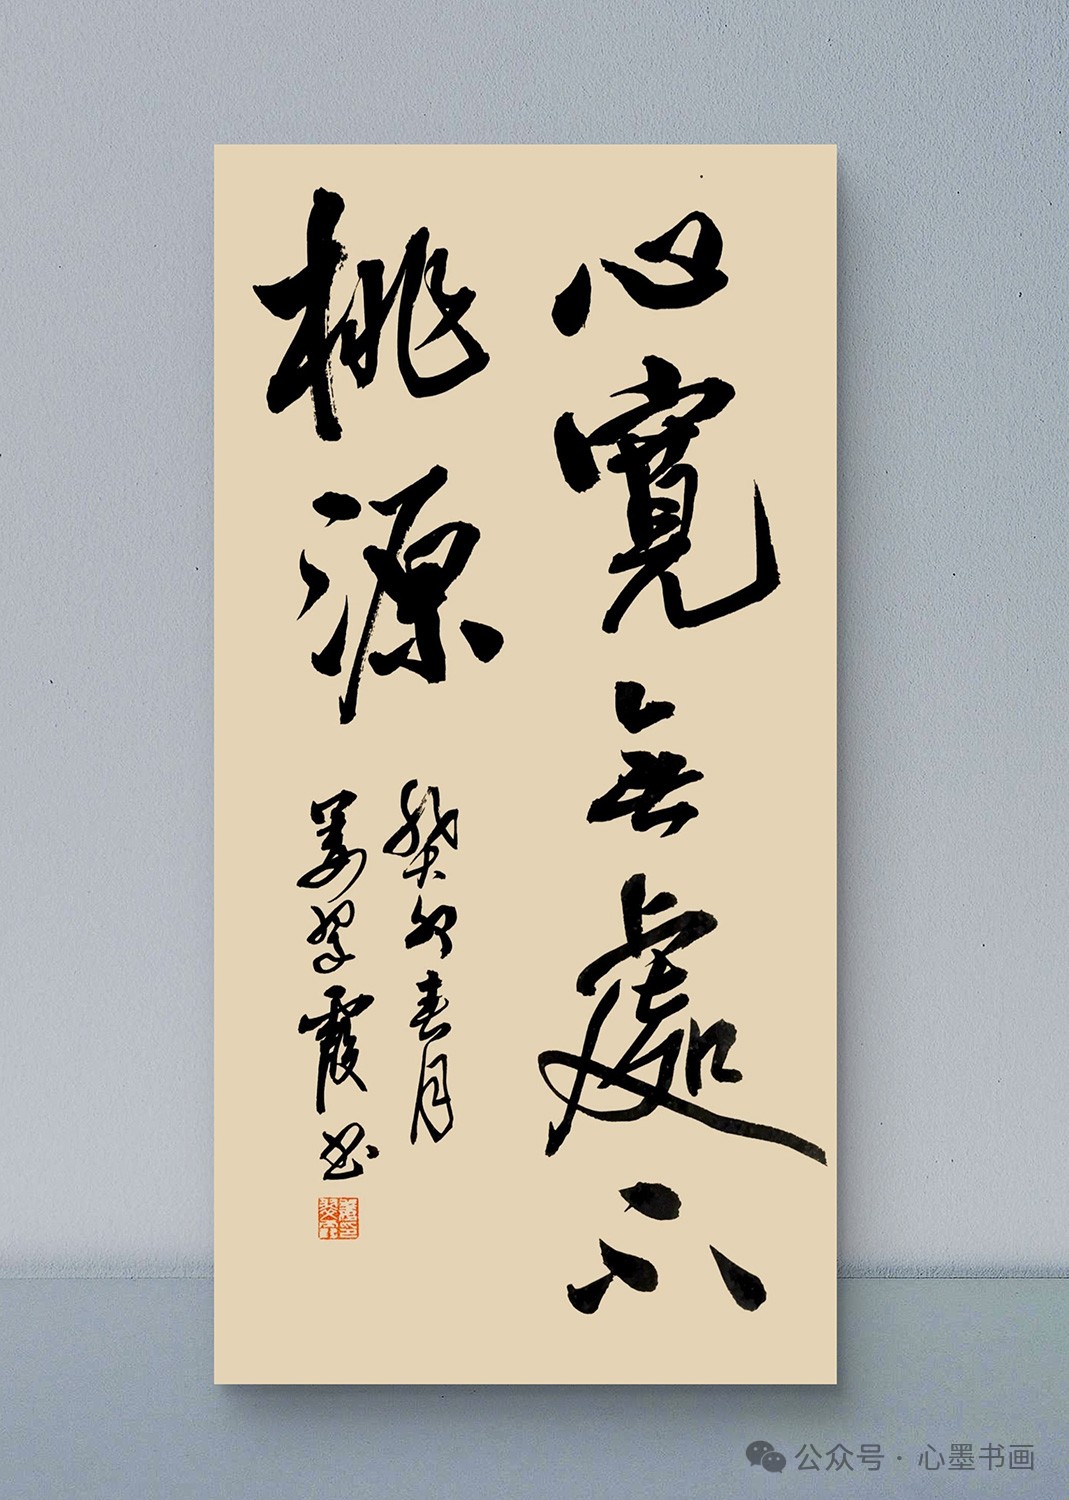 心寬無處不
桃源
癸卯春月
姜翠霞书
公众号·心墨书画